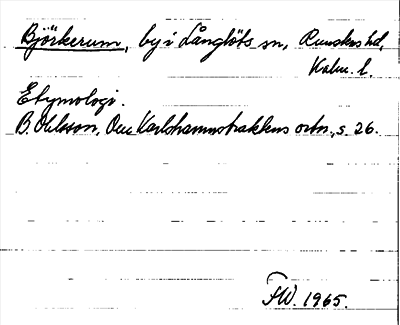 Björkerum, by i Långlöts sn, Runstens hd,
Kalm. l.
Etymologi.
B. Ohlsson, Om Karlshamnstraktens ortn., s. 26.
FW. 1965.